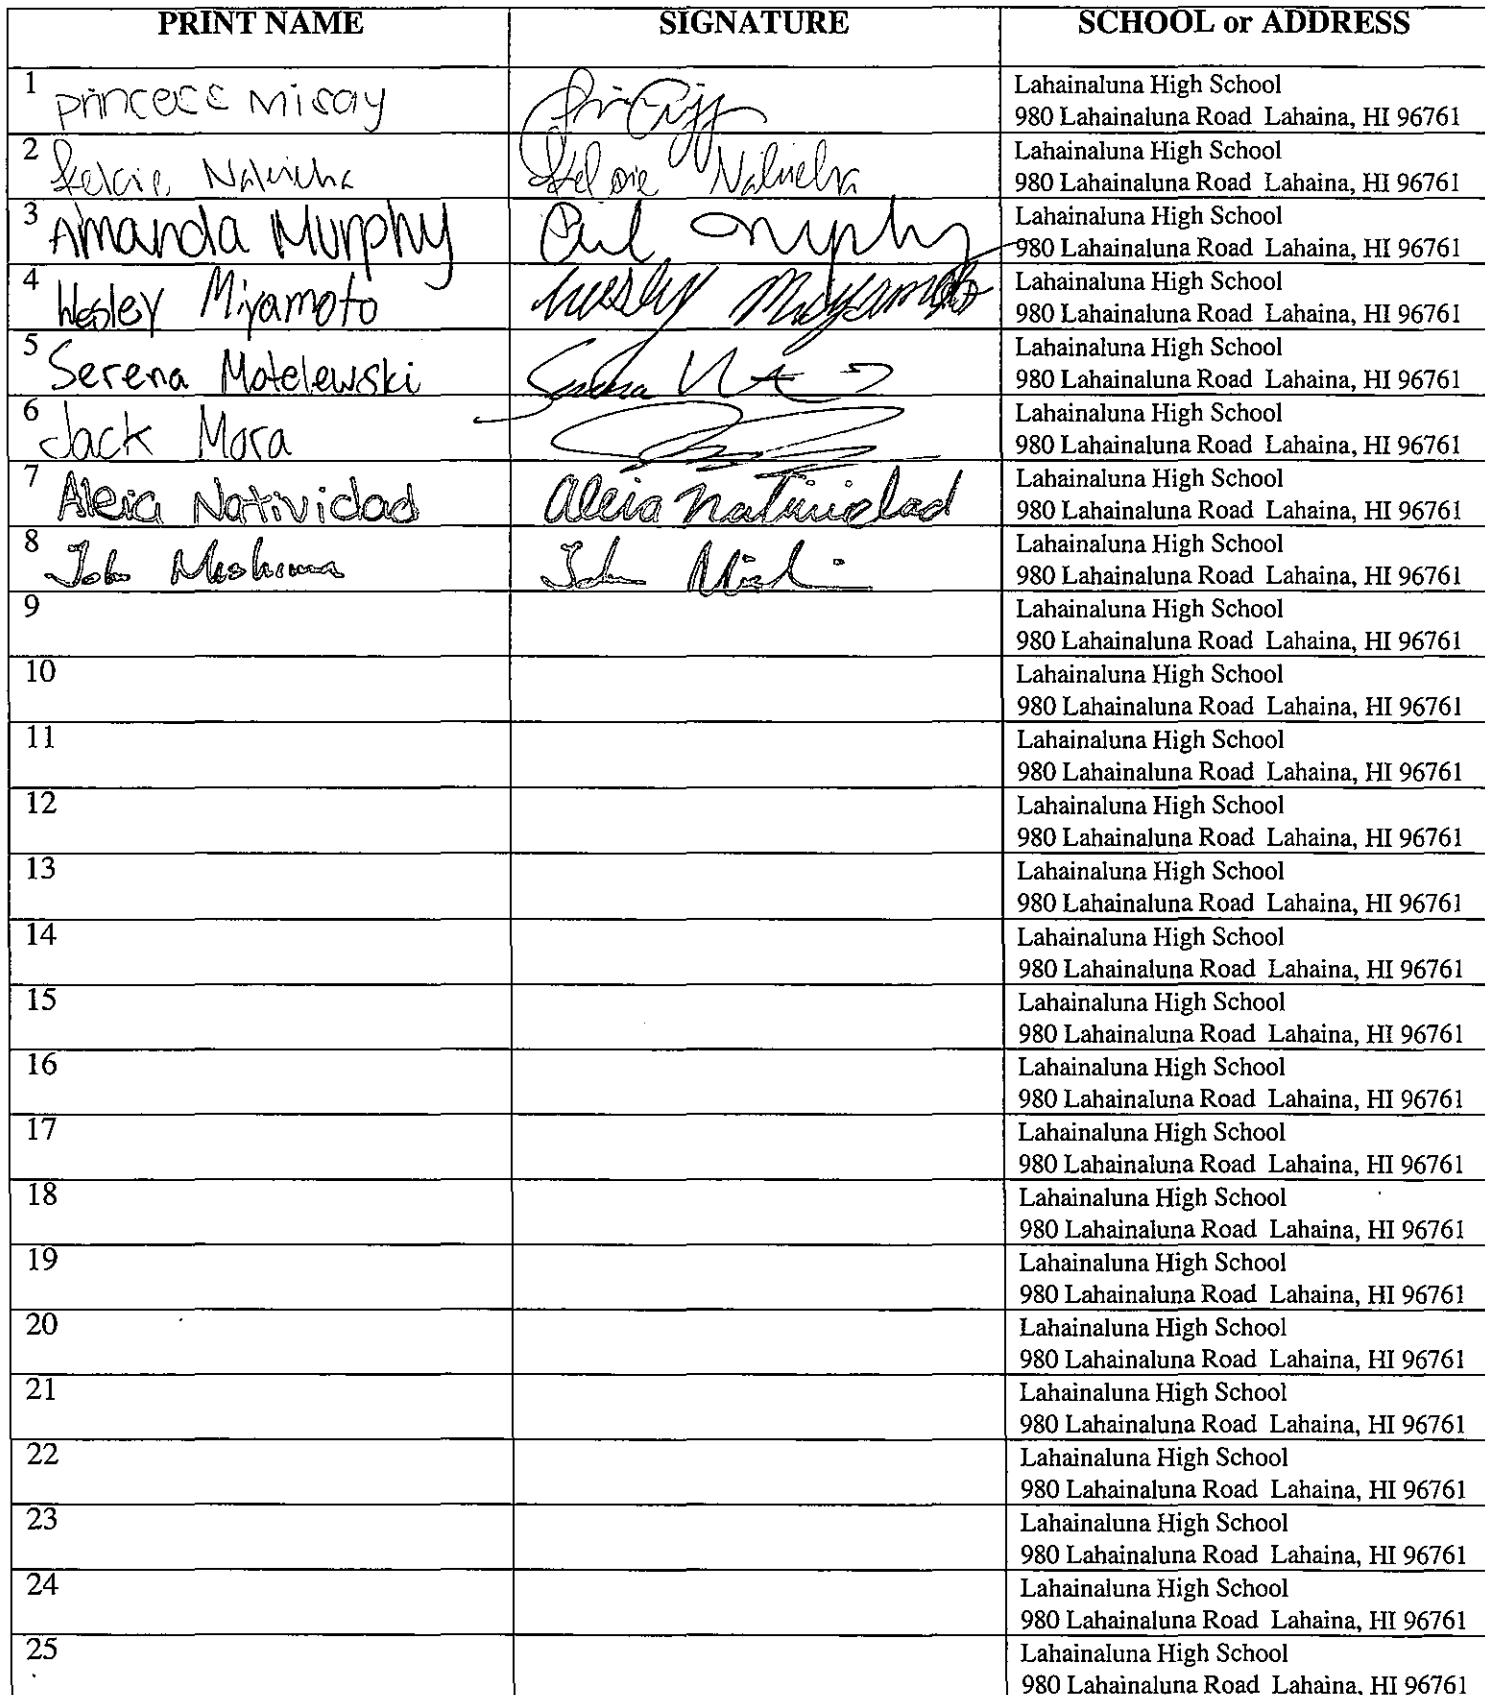 PRINT NAME SIGNATURE SCHOOL or ADDRESS
1 Princess Misay Lahainaluna High School
980 Lahainaluna Road Lahaina, HI 96761
2 Lahainaluna High School
980 Lahainaluna Road Lahaina, HI 96761
3 Amanda Murphy Murphy Lahainaluna High School
980 Lahainaluna Road Lahaina, HI 96761
4 Wesley Miyamoto Wesley Miyamoto Lahainaluna High School
980 Lahainaluna Road Lahaina, HI 96761
5 Serena Motelewski Serena Lahainaluna High School
980 Lahainaluna Road Lahaina, HI 96761
6 Jack Mora Lahainaluna High School
980 Lahainaluna Road Lahaina, HI 96761
7 Aleia Natividad Aleia Natividad Lahainaluna High School
980 Lahainaluna Road Lahaina, HI 96761
8 John John Lahainaluna High School
980 Lahainaluna Road Lahaina, HI 96761
9 Lahainaluna High School
980 Lahainaluna Road Lahaina, HI 96761
10 Lahainaluna High School
980 Lahainaluna Road Lahaina, HI 96761
11 Lahainaluna High School
980 Lahainaluna Road Lahaina, HI 96761
12 Lahainaluna High School
980 Lahainaluna Road Lahaina, HI 96761
13 Lahainaluna High School
980 Lahainaluna Road Lahaina, HI 96761
14 Lahainaluna High School
980 Lahainaluna Road Lahaina, HI 96761
15 Lahainaluna High School
980 Lahainaluna Road Lahaina, HI 96761
16 Lahainaluna High School
980 Lahainaluna Road Lahaina, HI 96761
17 Lahainaluna High School
980 Lahainaluna Road Lahaina, HI 96761
18 Lahainaluna High School
980 Lahainaluna Road Lahaina, HI 96761
19 Lahainaluna High School
980 Lahainaluna Road Lahaina, HI 96761
20 Lahainaluna High School
980 Lahainaluna Road Lahaina, HI 96761
21 Lahainaluna High School
980 Lahainaluna Road Lahaina, HI 96761
22 Lahainaluna High School
980 Lahainaluna Road Lahaina, HI 96761
23 Lahainaluna High School
980 Lahainaluna Road Lahaina, HI 96761
24 Lahainaluna High School
980 Lahainaluna Road Lahaina, HI 96761
25 Lahainaluna High School
980 Lahainaluna Road Lahaina, HI 96761